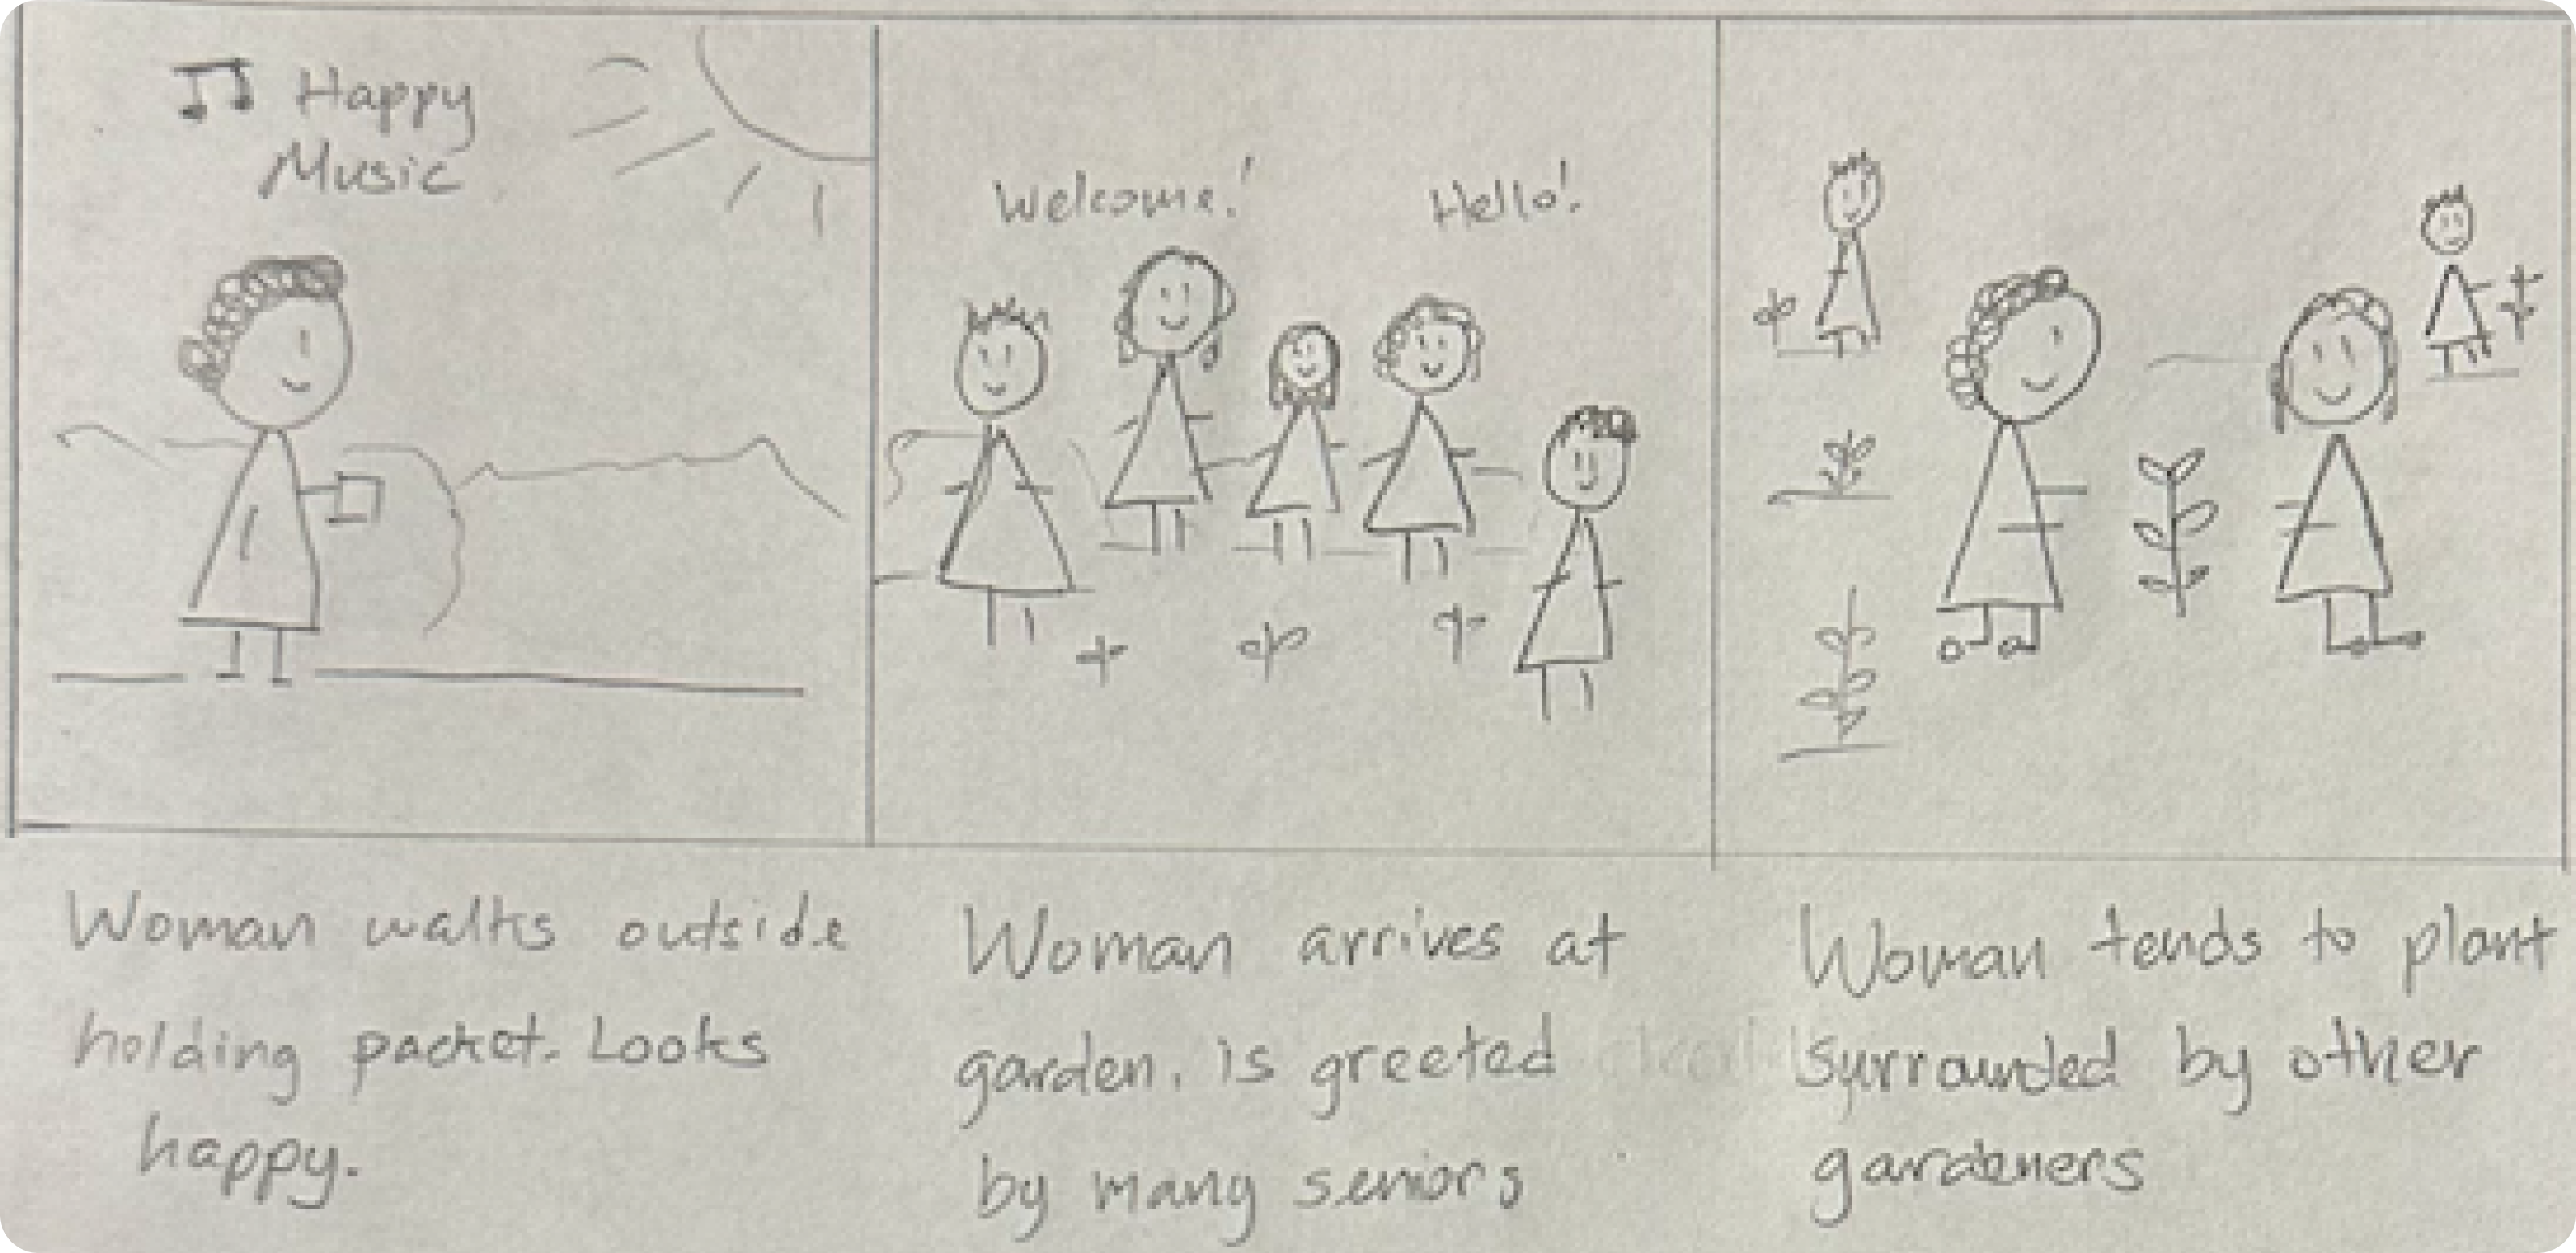 Happy
Music
Welcome!
Hello!
Woman walks outside
holding packet. Looks
happy.
Woman arrives at
garden, is greeted
by many seniors
Woman tends to plant
surrounded by other
gardeners